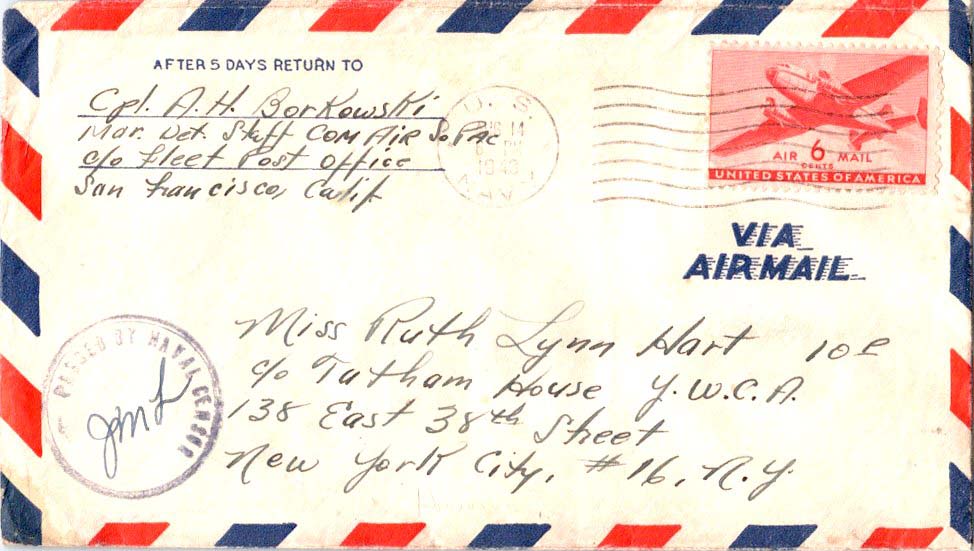 AFTER 5 DAYS RETURN TO
Cpl. A. H. Borkowski
Mar. Det. Staff Com Air SoPac
c/o Fleet Post Office
San Francisco, Calif
U. S.
14
1943
NAVY
AIR 6 MAIL
CENTS
UNITED STATES OF AMERICA
VIA
AIR MAIL
Miss Ruth Lynn Hart 10E
c/o Tatham House Y.W.C.A.
138 East 38th Street
New York City, #16, N.Y.
PASSED BY NAVAL CENSOR